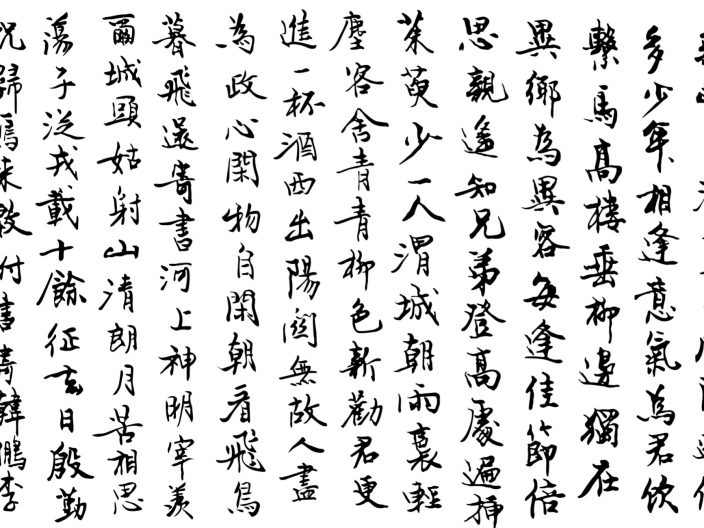 多少年相逢意氣為君飲
繫馬高樓垂柳邊獨在
異鄉為異客每逢佳節倍
思親遙知兄弟登高處遍插
茱萸少一人渭城朝雨裛輕
塵客舍青青柳色新勸君更
進一杯酒西出陽關無故人盡
為政心閑物自閑朝看飛鳥
暮飛還寄書河上神明宰羨
爾城頭姑射山清朗月苦相思
蕩子從戎載十餘征去日殷勤
歸鴈来數付書寄韓鵬李